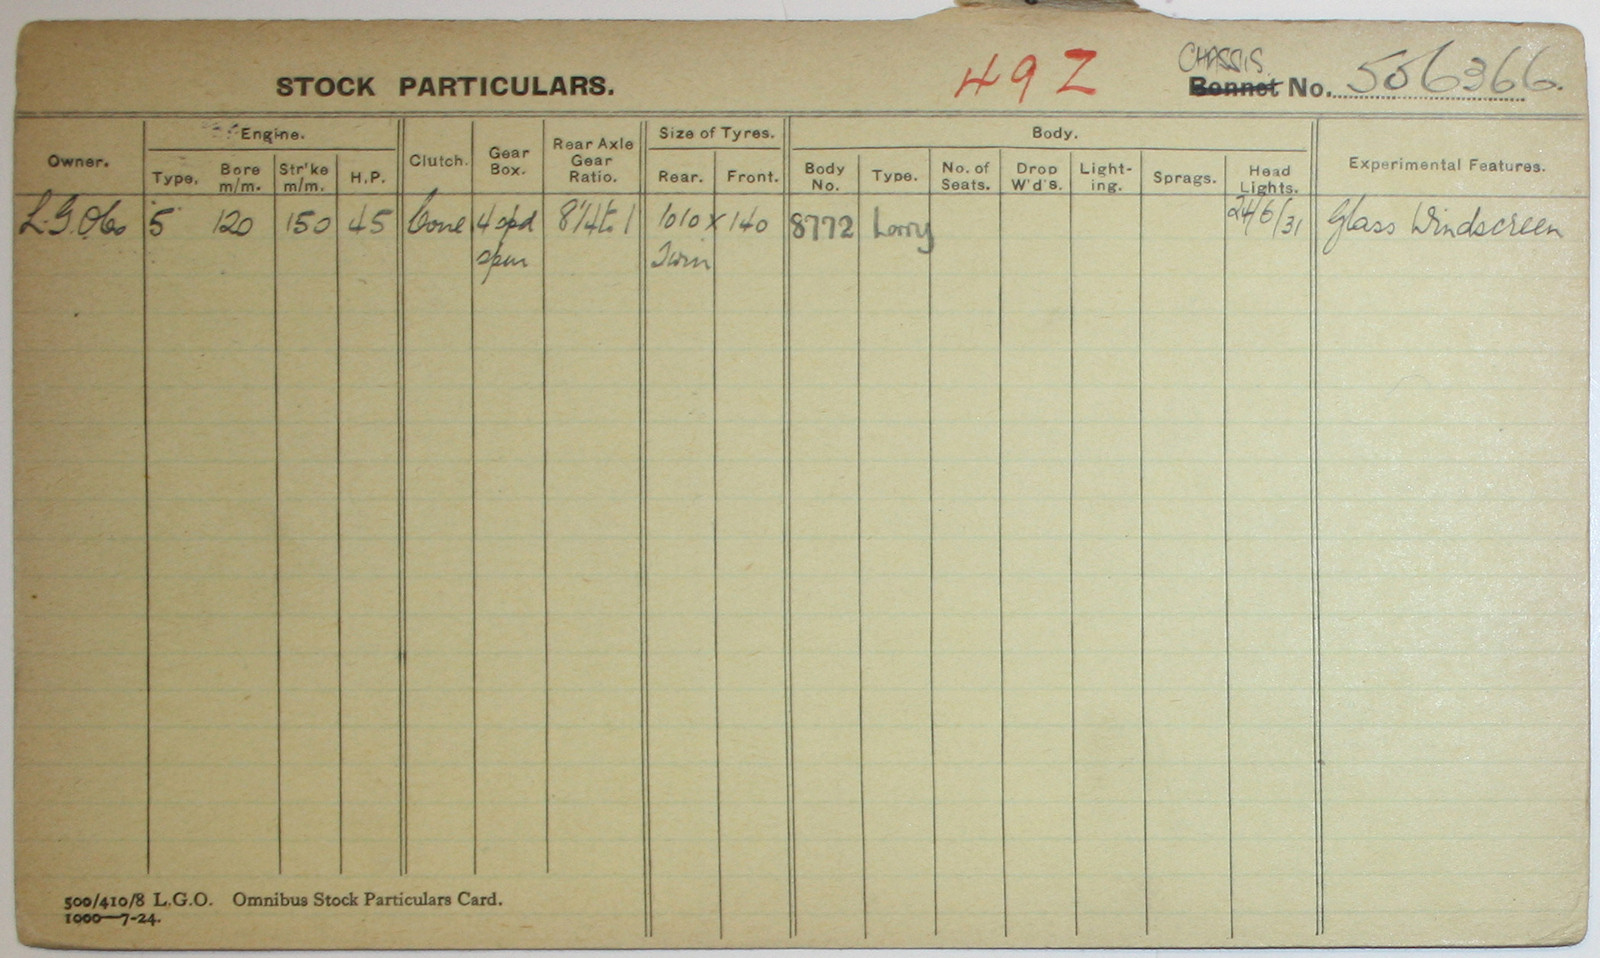 STOCK PARTICULARS. 49Z CHASSIS
Bonnet No. 506366.
Owner. Engine. Clutch. Gear Box. Rear Axle Gear Ratio. Size of Tyres. Body. Experimental Features.
Type. Bore m/m. Str'ke m/m. H.P. Rear. Front. Body No. Type. No. of Seats. Drop W'd's. Light-ing. Sprags. Head Lights.
L.G.O.Co 5 120 150 45 Cone 4 spd 8¼ to 1 1010 x 140 8772 Lorry 24/6/31 Glass Windscreen
spur Twin
500/410/8 L.G.O. Omnibus Stock Particulars Card.
1000—7-24.